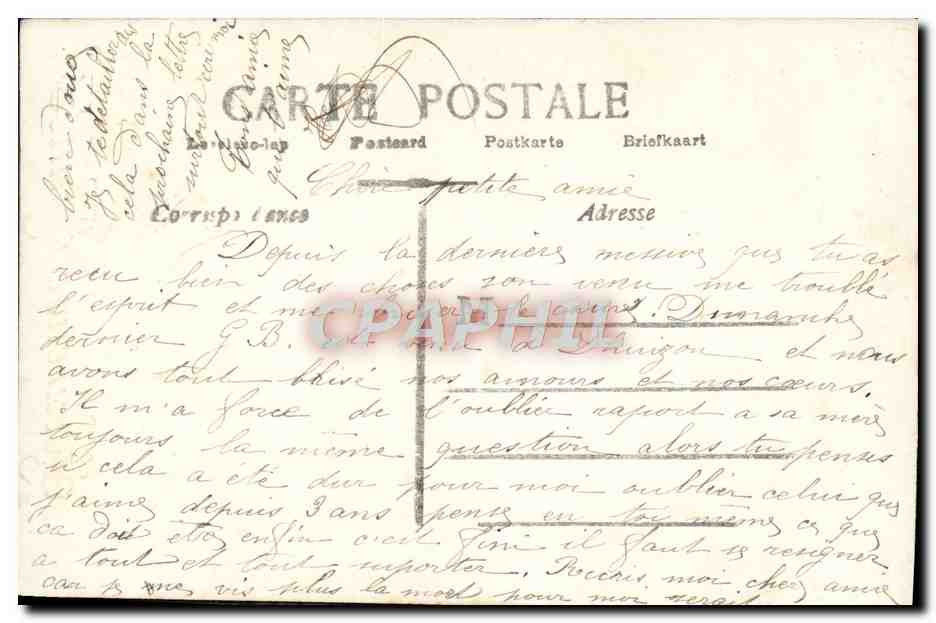 CARTE POSTALE
Levelezo-lap Postcard Postkarte Briefkaart
Chère petite amie
Correspondance Adresse
Depuis la dernière missive que tu as
recu bien des choses son venu me troublé
l'esprit et me le cœur. Dimanche
dernier G B. est venu a et nous
avons tout brisé nos amours et nos cœurs.
Il m'a force de l'oublier raport a sa mère
toujours la même question alors tu penses
si cela a été dur pour moi oublier celui que
j'aime depuis 3 ans pense en toi même ce que
ca doit etre enfin c'est fini il faut se resigner
a tout et tout suporter. Ecris moi cher amie
car je ne vis plus la mort pour moi serait
bien douce
Je te detaillerai
cela dans la
prochaine lettre
surtout ecris moi
Ton amie
qui t'aime
CPAPHIL